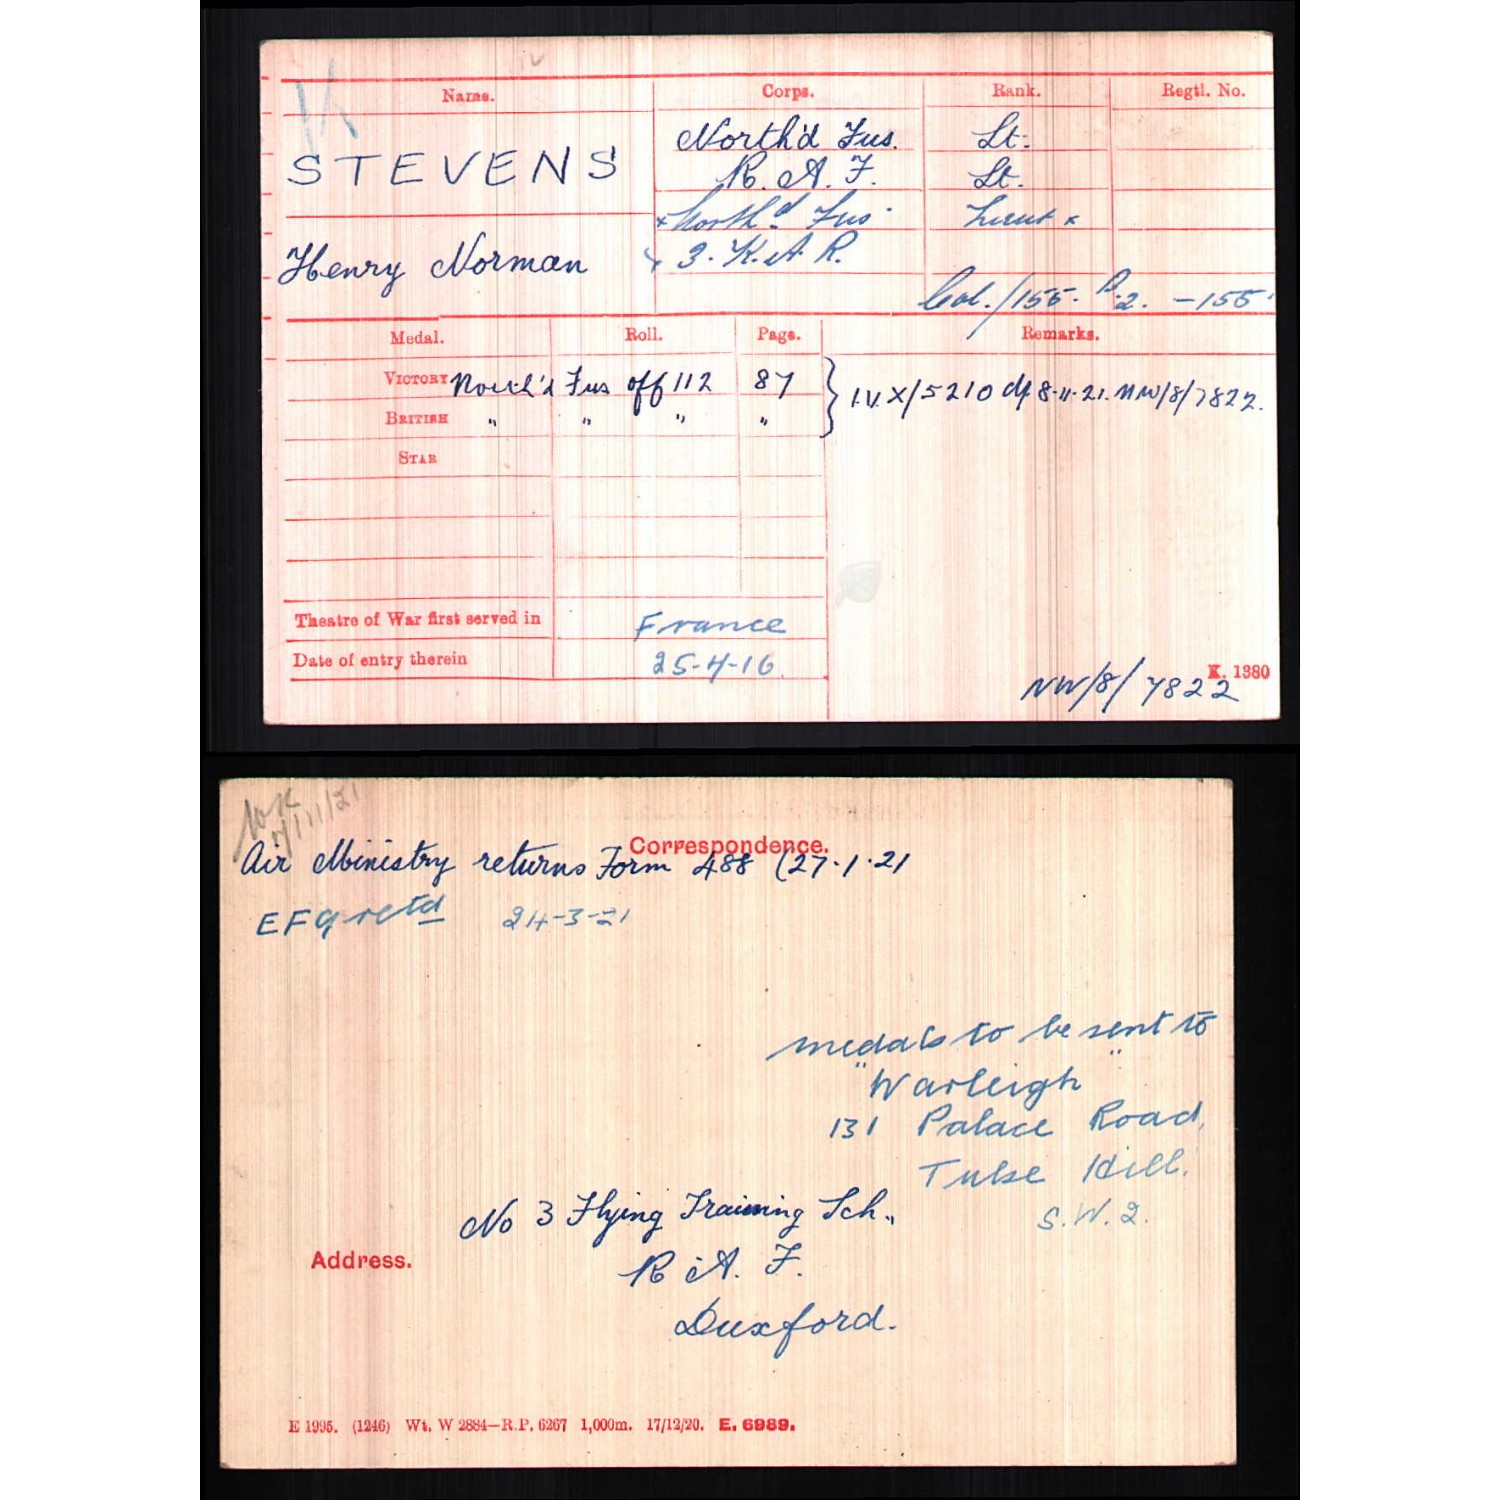 Name. Corps. Rank. Regtl. No.
STEVENS
Henry Norman
North'd Fus. Lt.
R. A. F. Lt.
× North'd Fus. Lieut ×
3. K. A. R.
Col./155. P.2. - 155
Medal. Roll. Page. Remarks.
VICTORY North'd Fus off 112 87 } I.V. X/5210 df 8-11-21. NW/8/7822.
BRITISH " " " "
STAR
Theatre of War first served in France
Date of entry therein 25-4-16.
K. 1380
NW/8/7822
Correspondence.
Air Ministry returns Form 488 (27.1.21
EF9 retd 24-3-21
medals to be sent to
"Warleigh"
131 Palace Road,
Tulse Hill.
S.W.2.
No 3 Flying Training Sch.,
Address. R. A. F.
Duxford.
E 1995. (1246) Wt. W 2884—R.P. 6267 1,000m. 17/12/20. E. 6989.